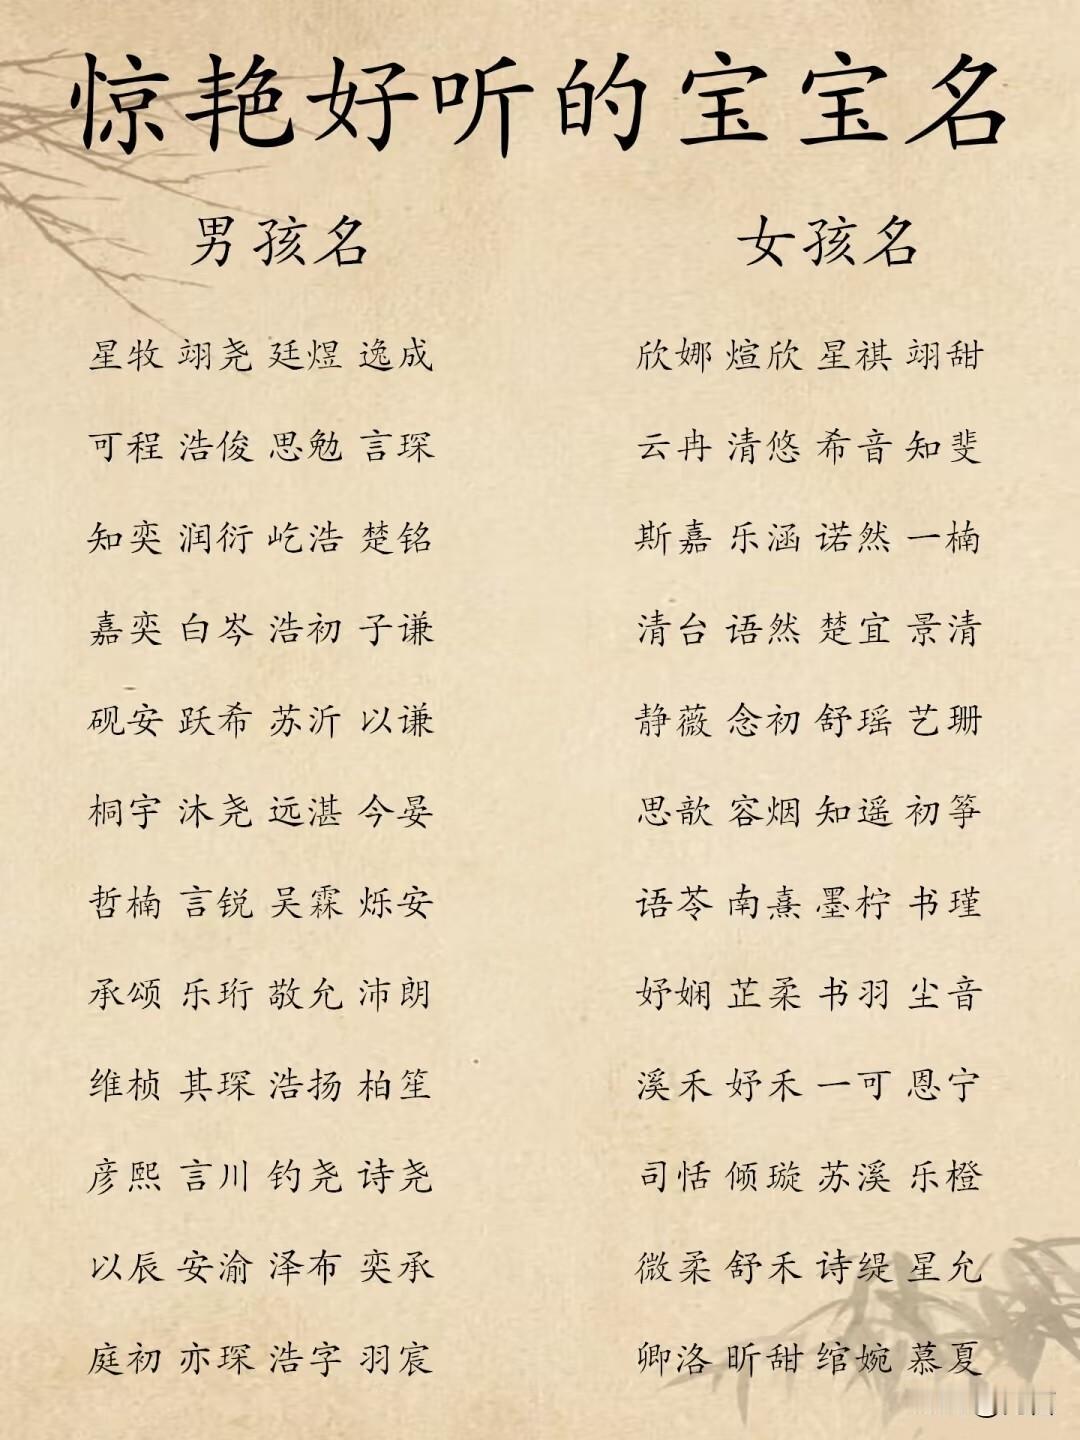 惊艳好听的宝宝名
男孩名 女孩名
星牧 翊尧 廷煜 逸成 欣娜 煊欣 星祺 翊甜
可程 浩俊 思勉 言琛 云冉 清悠 希音 知斐
知奕 润衍 屹浩 楚铭 斯嘉 乐涵 诺然 一楠
嘉奕 白岑 浩初 子谦 清台 语然 楚宜 景清
砚安 跃希 苏沂 以谦 静薇 念初 舒瑶 艺珊
桐宇 沐尧 远湛 今晏 思歆 容烟 知遥 初筝
哲楠 言锐 吴霖 烁安 语苓 南熹 墨柠 书瑾
承颂 乐珩 敬允 沛朗 妤娴 芷柔 书羽 尘音
维桢 其琛 浩扬 柏笙 溪禾 妤禾 一可 恩宁
彦熙 言川 钓尧 诗尧 司恬 倾璇 苏溪 乐橙
以辰 安渝 泽布 奕承 微柔 舒禾 诗缇 星允
庭初 亦琛 浩字 羽宸 卿洛 昕甜 绾婉 慕夏